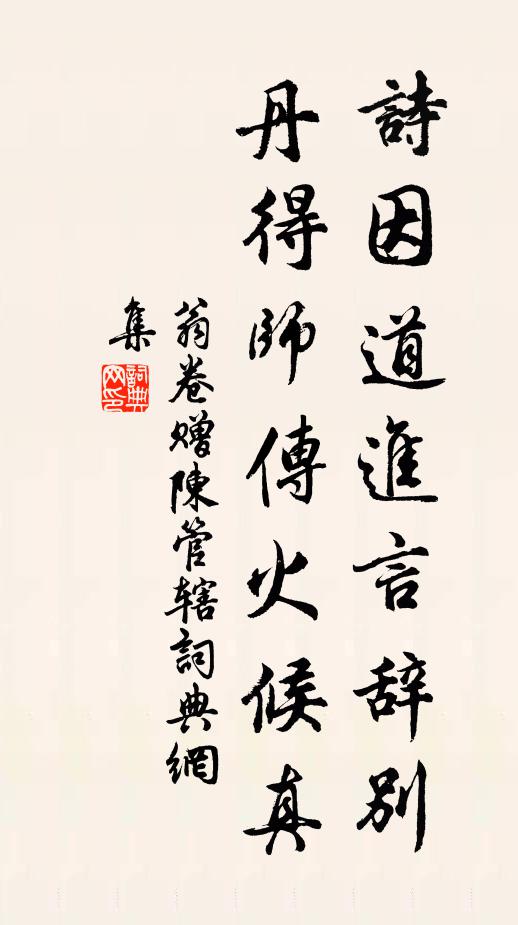 詩因道進言辞別
丹得師傳火候真
翁卷贈陳管辖詞典網
集
詞典网印